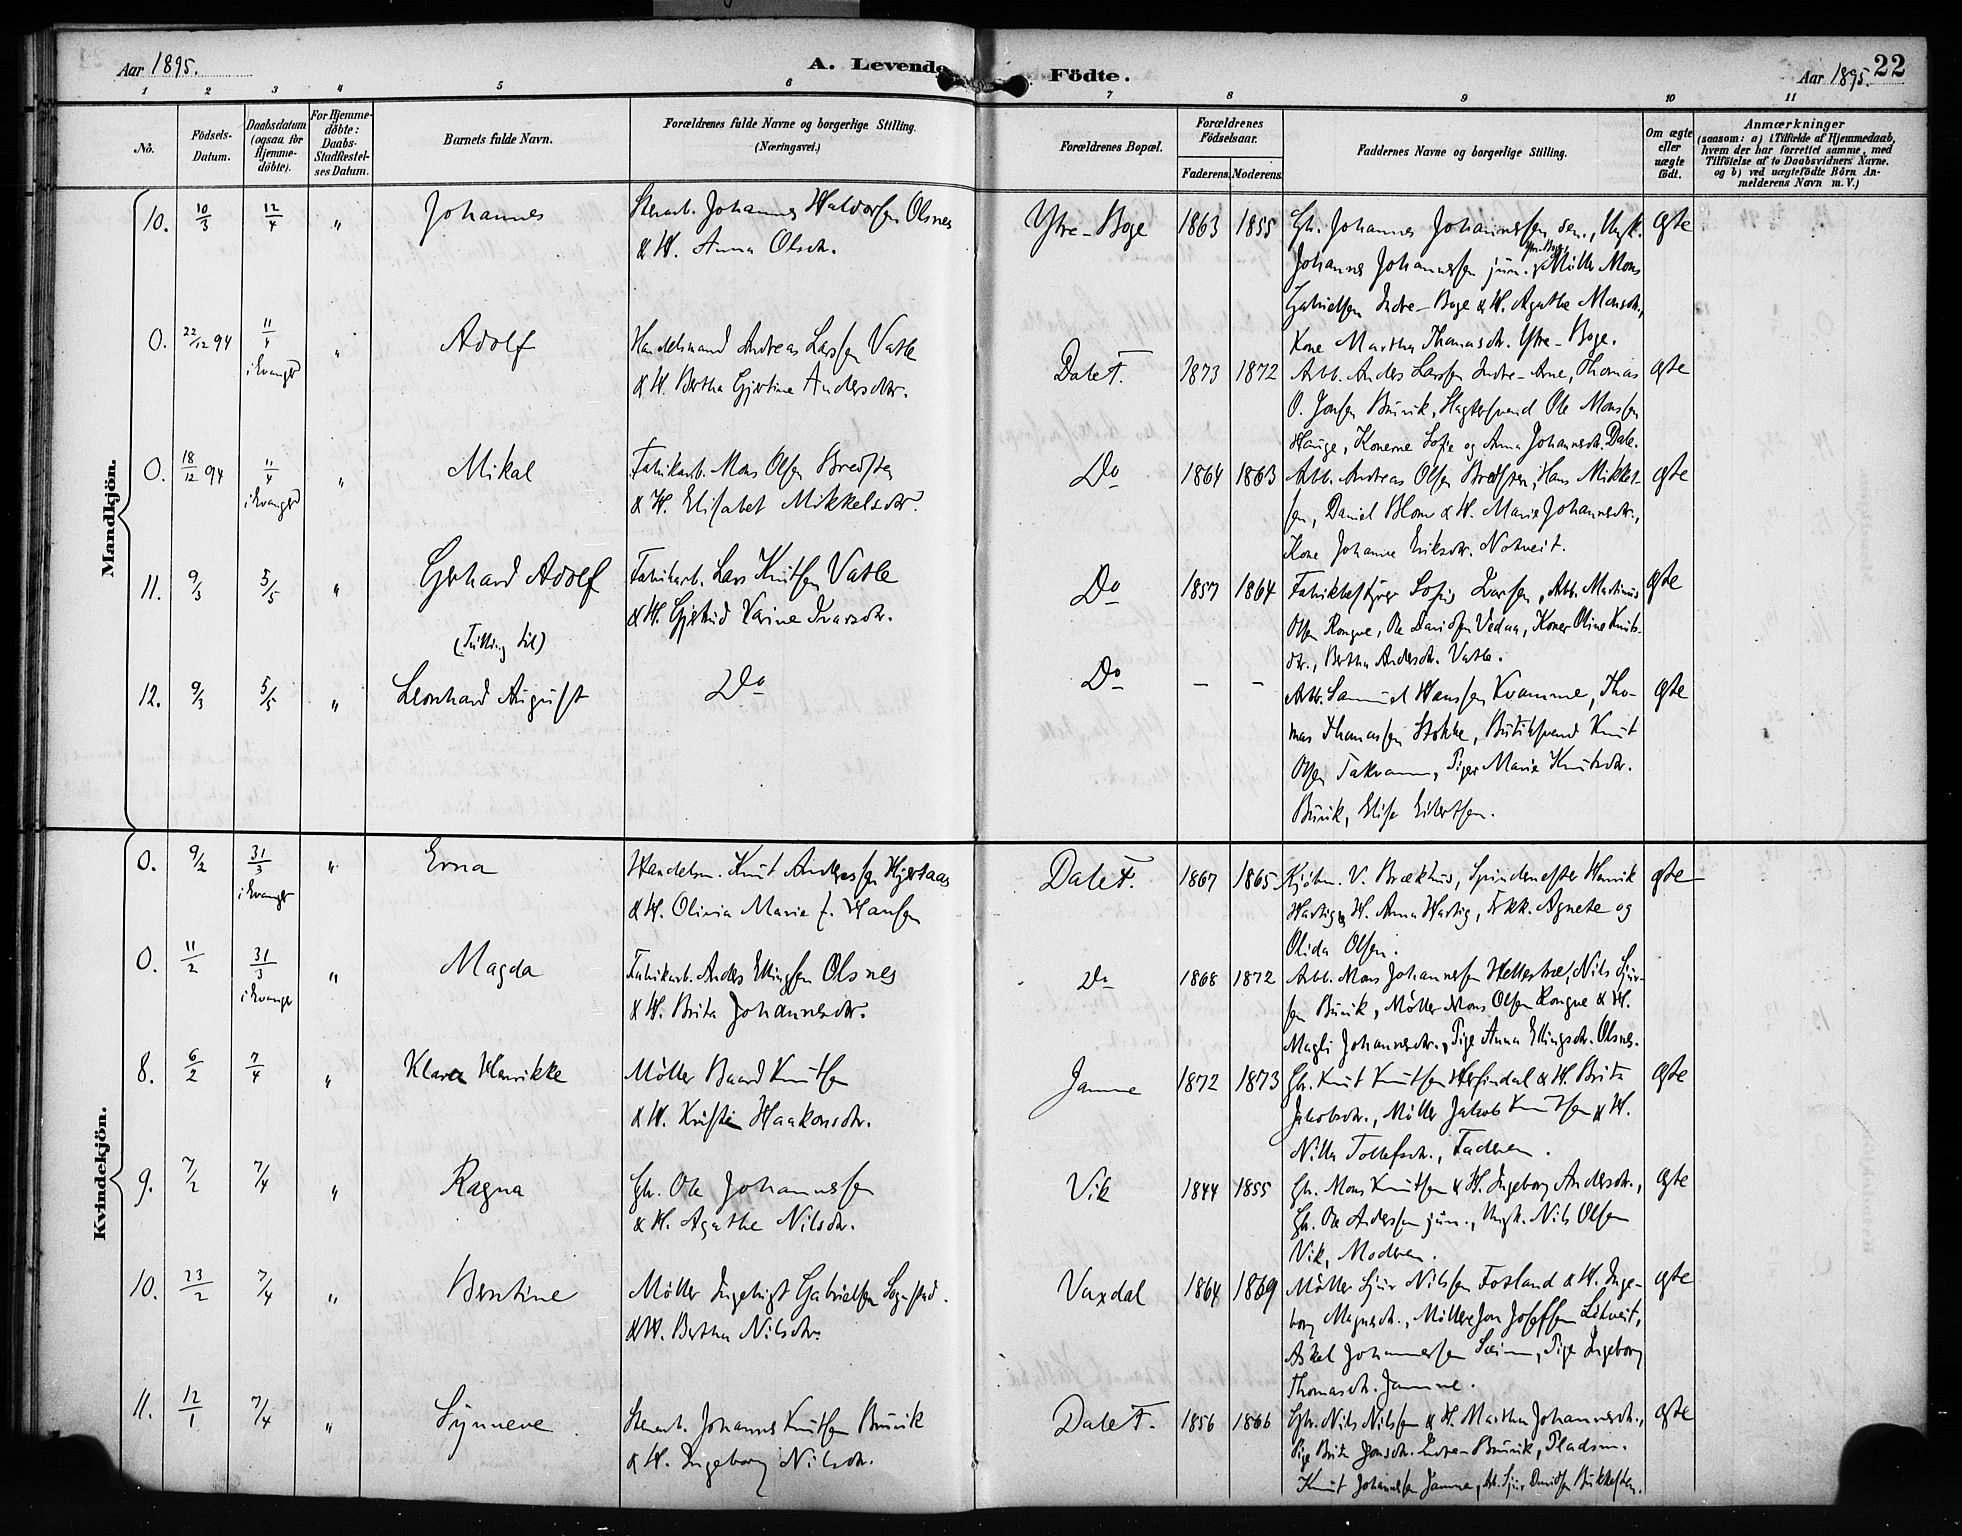 Aar 1895.
A. Levende Födte.
Aar 1895. 22
1 2 3 4 5 6 7 8 9 10 11
No.
Födsels-Datum.
Daabsdatum (ogsaa for Hjemmedöbte).
For Hjemmedöbte: Daabs-Stadfestelses Datum.
Barnets fulde Navn.
Forældrenes fulde Navne og borgerlige Stilling. (Næringsvei.)
Forældrenes Bopæl.
Forældrenes Födselsaar.
Faderens. Moderens.
Faddernes Navne og borgerlige Stilling.
Om ægte eller uægte födt.
Anmærkninger
(saasom: a) i Tilfælde af Hjemmedaab, hvem der har forrettet samme, med Tilföielse af to Daabsvidners Navne, og b) ved uægtefödte Börn Anmelderens Navn m. V.)
Mandkjön.
10. 10/3 12/4 " Johannes
Stenarb. Johannes Haldorsen Olsnes
& H. Anna Olsdr.
Ytre-Boge 1863 1855
Gb. Johannes Johannessen sen., Ungk.
Johannes Johannessen jun. Ytre-Boge, Möller Mons
Gabrielsen Indre-Boge & H. Agathe Monsdr.,
Kone Martha Thomasdr. Ytre-Boge.
ægte
0. 22/12 94 11/4 i Evanger " Adolf
Handelsmand Andreas Larssen Vatle
& H. Bertha Gjertine Andersdtr.
Dale F. 1873 1872
Arb. Anders Larssen Indre-Arne, Thomas
O. Jonsen Bruvik, Slagtersvend Ole Monssen
Hauge, Konerne Sofie og Anna Johannesdr. Dale.
ægte
0. 18/12 94 11/4 i Evanger " Mikal
Fabrikarb. Mons Olsen Bredsten
& H. Elisabet Mikkelsdtr.
Do 1864 1863
Arb. Andreas Olsen Bredsten, Hans Mikkelsen, Daniel Blom & H. Marie Johannesdr.,
Kone Johanne Eriksdr. Notveit.
ægte
11. 9/3 5/5 " Gerhard Adolf
(Tvilling til)
Fabrikarb. Lars Knutsen Vatle
& H. Gjertrud Karine Ivarsdtr.
Do 1857 1864
Fabrikbestyrer Sofus Larsen, Arb. Martinus
Olsen Rongve, Ole Davidsen Vedaa, Koner Oline Knutsdtr., Bertha Andersdr. Vatle.
ægte
12. 9/3 5/5 " Leonhard August
Do
Do - -
Arb. Samuel Hanssen Kvamme, Thomas Thomassen Stokke, Butiksvend Knut
Olsen Takvam, Piger Marie Knutsdr.
Bruvik, Elise Eilertsen.
ægte
Kvindekjön.
0. 9/2 31/3 i Evanger " Erna
Handelsm. Knut Anderssen Hjertaas
& H. Olivia Marie f. Hansen
Dale F. 1867 1865
Kjöbm. V. Brækhus, Spindemester Henrik
Hartig & H. Anna Hartig, Frkk. Agnete og
Olida Olsen.
ægte
0. 11/2 31/3 i Evanger " Magda
Fabrikarb. Anders Ellingsen Olsnes
& H. Brita Johannesdtr.
Do 1868 1872
Arb. Mons Johannessen Hellestræ, Nils Sjursen Bruvik, Möller Mons Olsen Rongve & H.
Magli Johannesdr., Pige Anna Ellingsdr. Olsnes.
8. 6/2 7/4 " Klara Henrikke
Möller Baard Knutsen
& H. Kristine Haakonsdtr.
Jamne 1872 1873
Gb. Knut Knutsen Herfindal & H. Brita
Jakobsdr., Möller Jakob Knutsen & H.
Nilla Tollefsdr., Faderen.
ægte
9. 7/2 7/4 " Ragna
Gb. Ole Johannessen
& H. Agathe Nilsdtr.
Vik 1844 1855
Gb. Mons Knutsen & H. Ingeborg Andersdr.,
Gb. Ole Anderssen jun., Ungk. Nils Olsen
Vik, Moderen.
ægte
10. 23/2 7/4 " Bentine
Möller Ingebrigt Gabrielsen Sognstad
& H. Bertha Nilsdtr.
Vaxdal 1864 1869
Möller Sjur Nilssen Fosland & H. Ingeborg Magnesdr., Möllere Jon Josefsen Litveit,
Askel Johannessen Seim, Pige Ingeborg
Thomasdr. Jamne.
ægte
11. 12/1 7/4 " Synneve
Stenarb. Johannes Knutsen Bruvik
& H. Ingeborg Nilsdr.
Dale F. 1856 1866
Gb. Nils Nilssen & H. Martha Johannesdr.,
Pige Brita Jonsdr. Indre-Bruvik, Pladsm.
Knut Johannessen Jamne, Arb. Sjur Davidsen
ægte